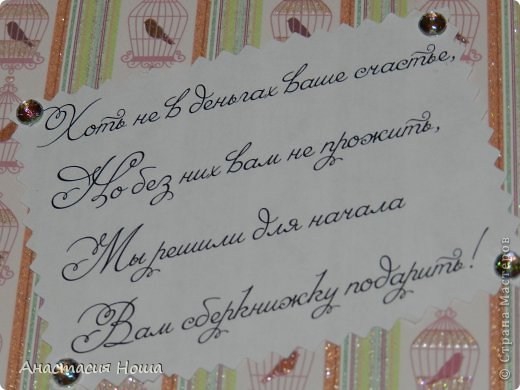 Хоть не в деньгах ваше счастье,
Но без них вам не прожить,
Мы решили для начала
Вам сберкнижку подарить!
Анастасия Ноша
© Страна Мастеров